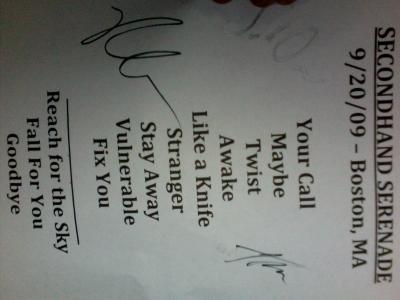 SECONDHAND SERENADE
9/20/09 – Boston, MA
Your Call
Maybe
Twist
Awake
Like a Knife
Stranger
Stay Away
Vulnerable
Fix You
Reach for the Sky
Fall For You
Goodbye